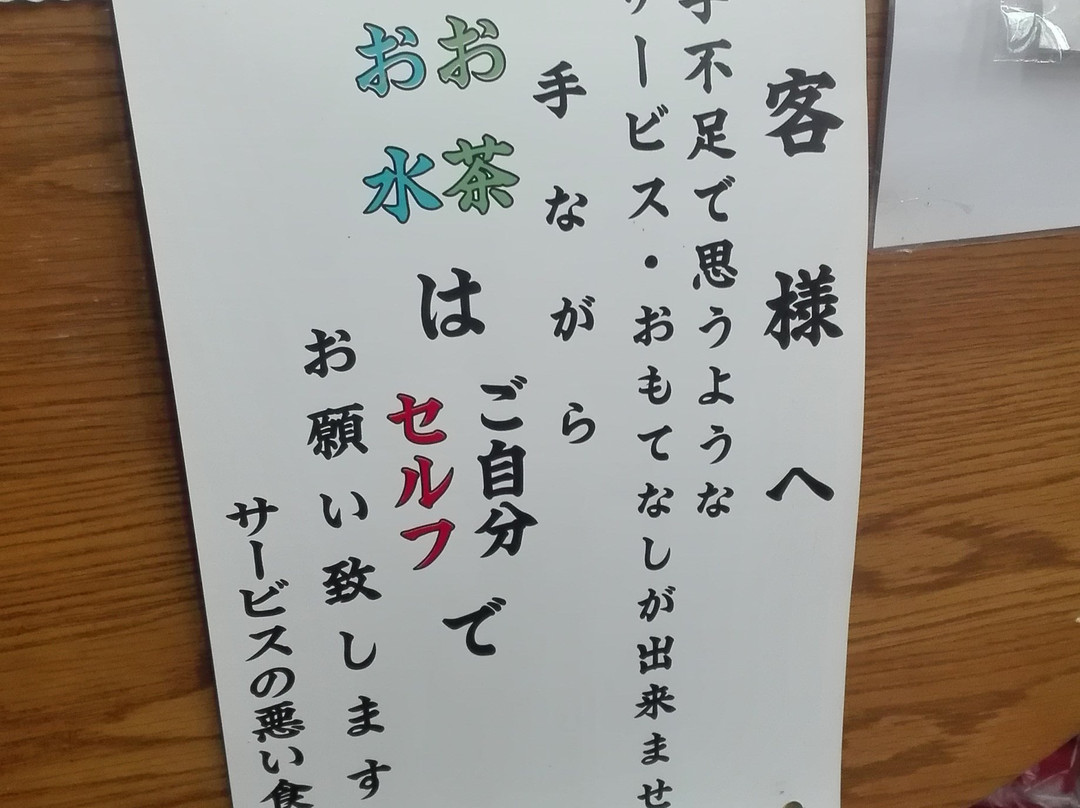 客様へ
手不足で思うような
サービス・おもてなしが出来ませ
手ながら
お茶
お水
は
ご自分
セルフ
で
お願い致します
サービスの悪い食